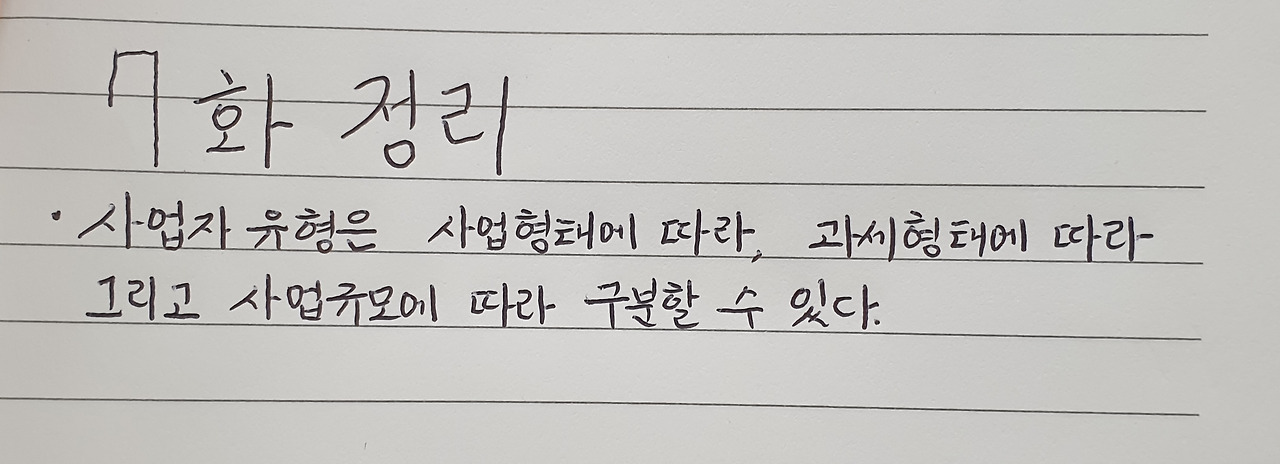 7화 정리
· 사업자 유형은 사업형태에 따라, 과세형태에 따라
그리고 사업규모에 따라 구분할 수 있다.